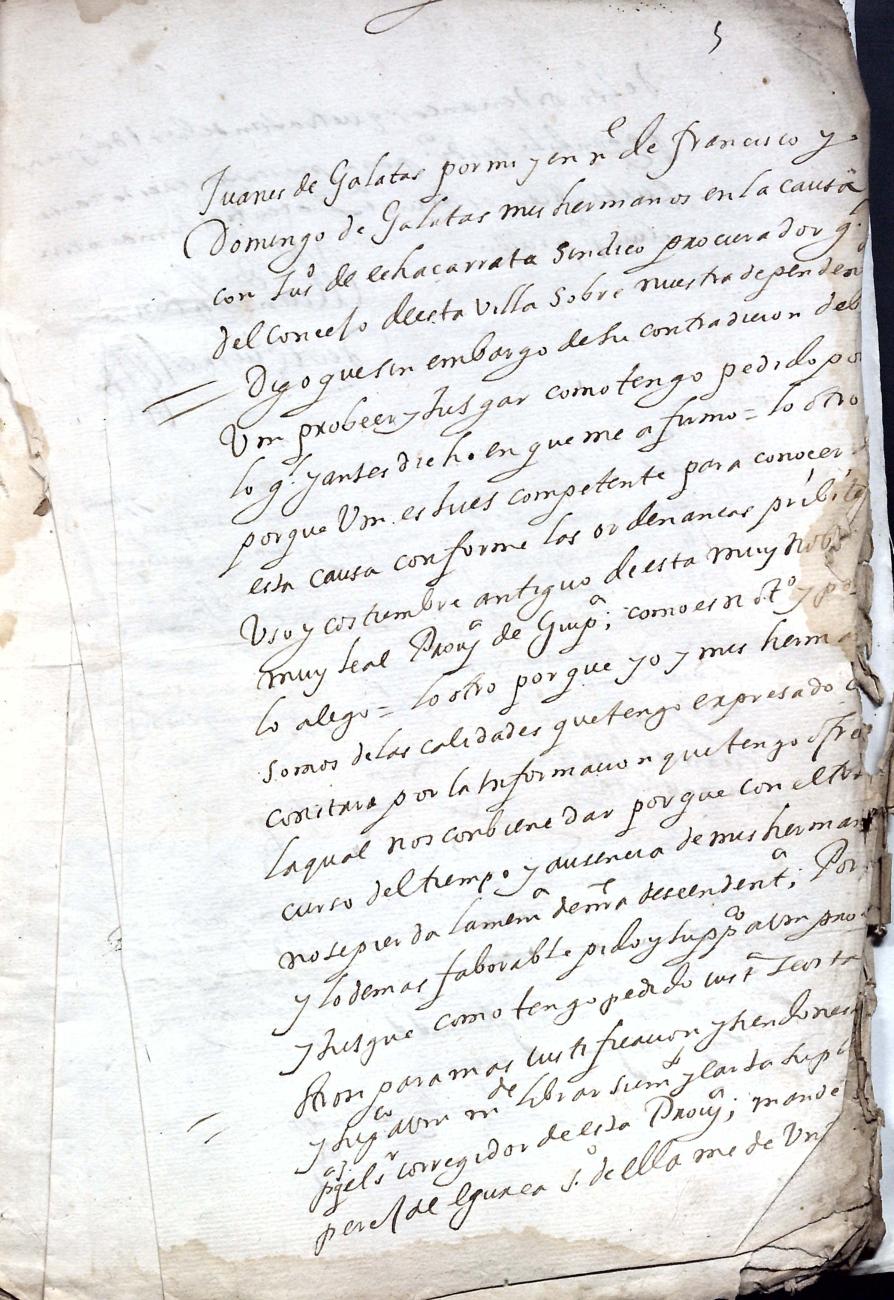 5
Juanes de Galatas por mi y en ne de francisco y
Domingo de Galatas mis hermanos en la causa
con Juo de echacarrata Sindico procurador gl
del Concejo de esta Villa Sobre nuestra dependen
Digo que sin embargo de su contradicion deb
Vm probeer y Jusgar como tengo pedido po
lo gl y antes dicho en que me afirmo = lo otro
porque Vm es Jues competente para conocer
esta causa conforme las ordenancas pribile
Uso y costumbre antiguo de esta muy noble
muy leal Prouja de Guipa; como es notto y po
lo alego = lo otro porque yo y mis herma
somos de las calidades que tengo expresado
constara por la Informacion que tengo ofre
la qual nos conbiene dar porque con el tra
curso del tiempo y ausencia de mis herman
no se pierda la mema de nra descendenta; Por
y lo demas faborable pido y suppco a Vm pro
y Jusgue como tengo pedido Justa Jcosta
Otrosi para mas Justificacion y siendo nes
y supco a Vm mde librar sumto y carta supli
pa q el sr corregidor de esta Prouja; mande
peres de Egurca so de ella me de Un